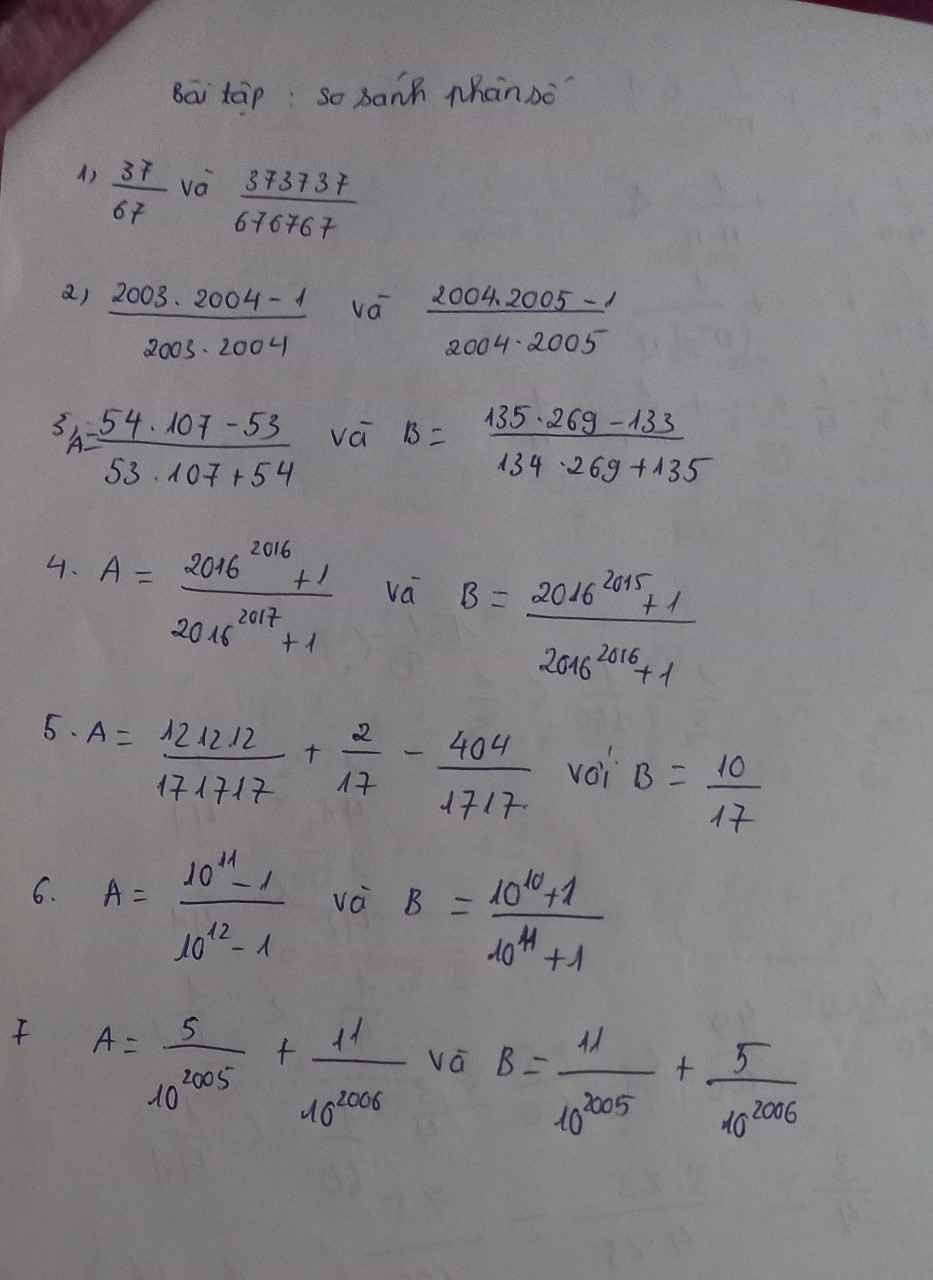 Bài tập : so sánh phân số
1) 37/67 và 373737/676767
2) (2003.2004-1)/(2003.2004) và (2004.2005-1)/(2004.2005)
3, A = (54.107-53)/(53.107+54) và B = (135.269-133)/(134.269+135)
4. A = (2016^2016+1)/(2016^2017+1) và B = (2016^2015+1)/(2016^2016+1)
5. A = 121212/171717 + 2/17 - 404/1717 với B = 10/17
6. A = (10^11-1)/(10^12-1) và B = (10^10+1)/(10^11+1)
7 A = 5/10^2005 + 11/10^2006 và B = 11/10^2005 + 5/10^2006